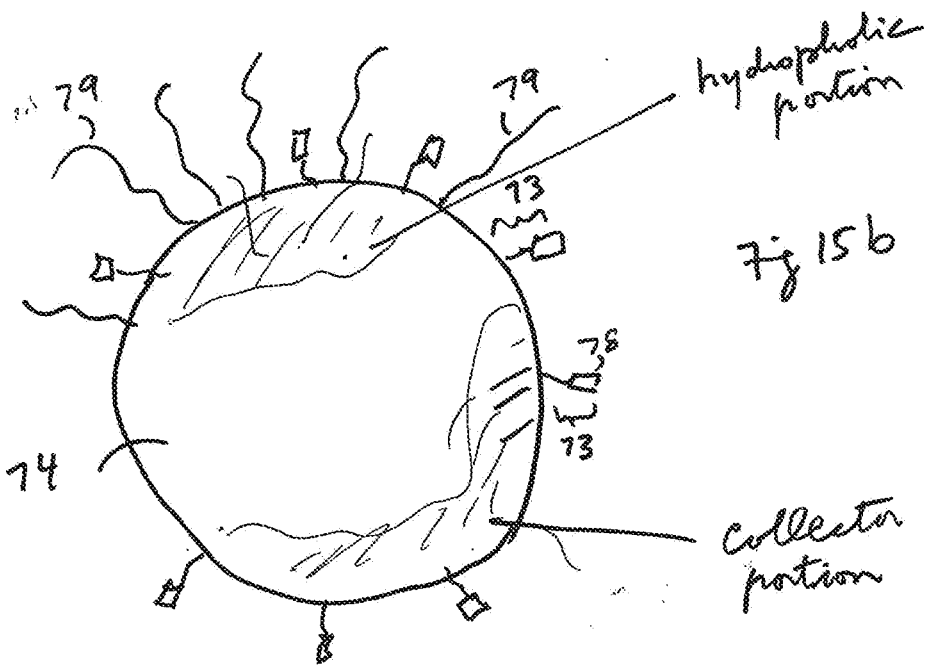 79
79
hydrophobic
portion
73
Fig 15b
78
73
74
collector
portion